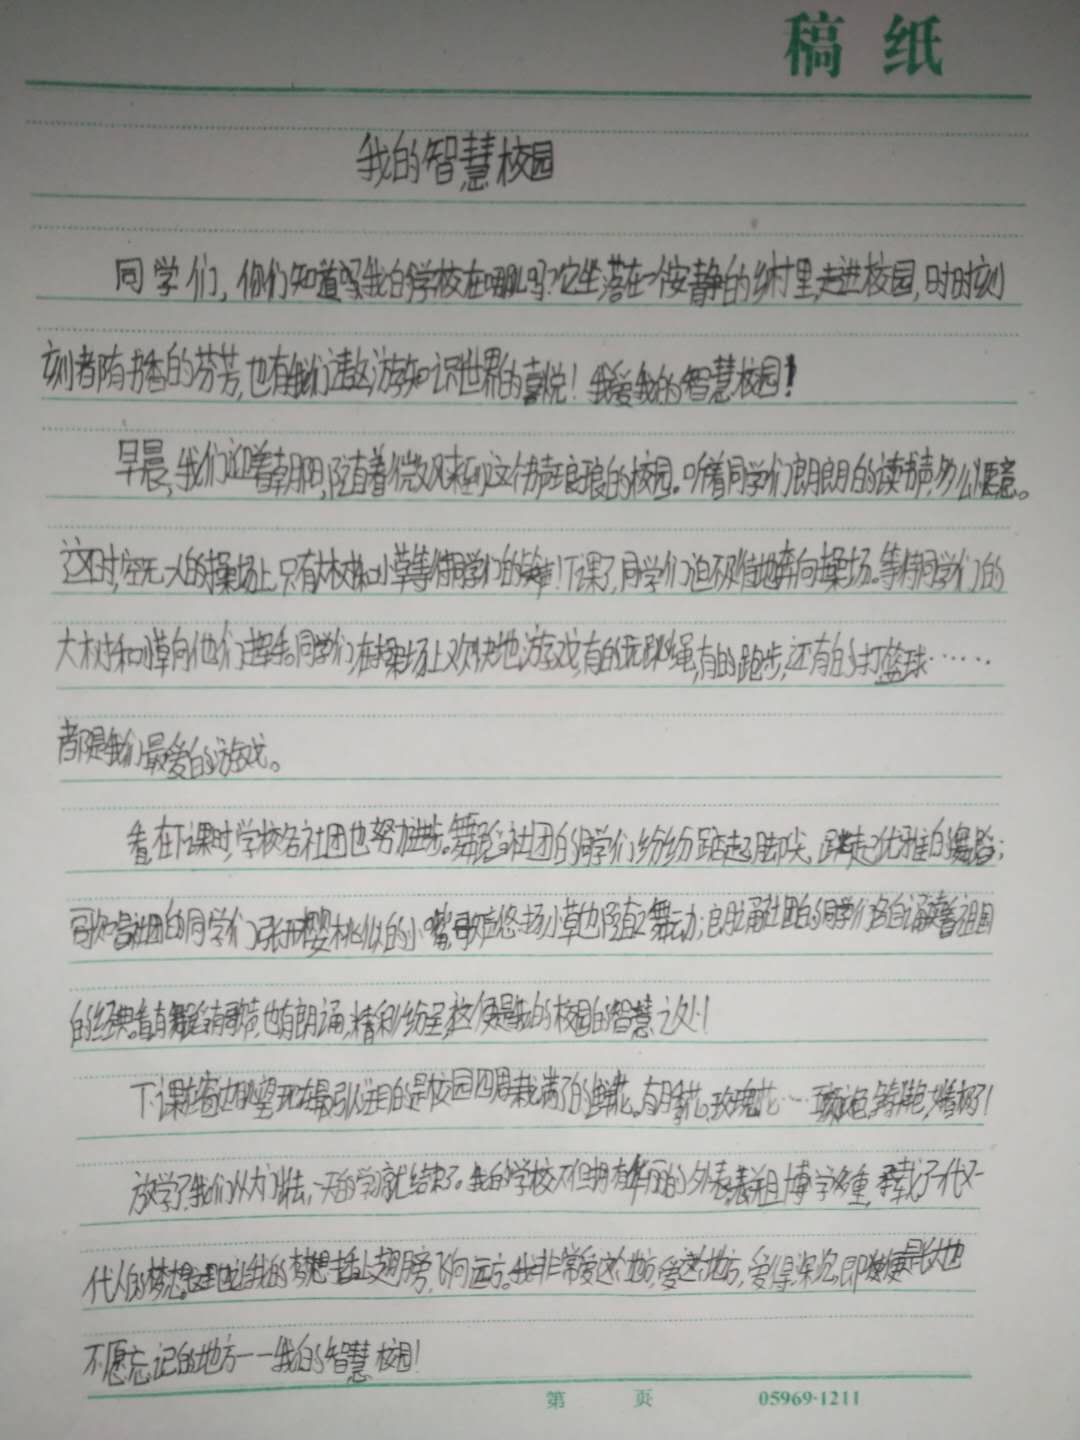 稿 纸
我的智慧校园
同学们,你们知道吗我的学校在哪儿吗?它坐落在一个安静的乡村里,走进校园,时时刻
刻都有书香的芬芳,也有我们遨游知识世界的喜悦!我爱我的智慧校园!
早晨,我们迎着朝阳,随着微风来到这个书声琅琅的校园。听着同学们朗朗的读书声,多么惬意。
这时,空无一人的操场上,只有大树和小草等待同学们的!下课了,同学们迫不及待地奔向操场。等待同学们的
大树和小草向他们招手。同学们在操场上欢快地游戏,有的玩跳绳,有的跑步,还有的打篮球……
都是我们最爱的游戏。
看,在下课时,学校各社团也努力进步。舞蹈社团的同学们纷纷踮起脚尖,跳起优雅的舞蹈;
歌唱社团的同学们张开樱桃似的小嘴,歌声悠扬,小草也随之舞动;朗诵社团的同学们各自诵读着祖国
的经典。看,有舞蹈,有歌声,也有朗诵,精彩纷呈,这便是我的校园的智慧之处!
下课在窗边眺望,现在最引人注目的是校园四周栽满了的鲜花。有月季花,玫瑰花……美极了!
放学了,我们从大门出去,一天的学习就结束了。我的学校不但拥有华丽的外表,博学多重,承载了一代又
一代人的梦想。让我的梦想插上翅膀,飞向远方。我非常爱这个地方,爱这个地方,爱得深沉,即使是长大也
不愿忘记的地方——我的智慧校园!
第 页 05969-1211